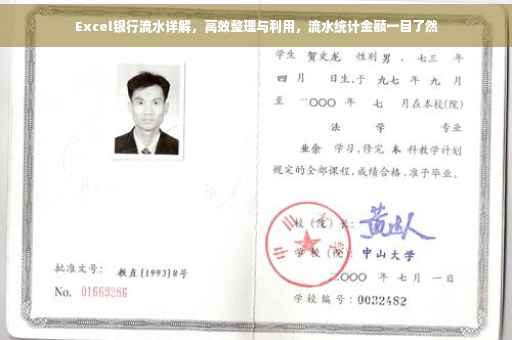 Excel银行流水详解，高效整理与利用，流水统计金额一目了然
学生 贺文龙 性别 男，七三 年
四 月 日生，于 九七 年 九 月
至 二〇〇〇 年 七 月在本校(院)
法 学 专业
业余 学习，修完 本 科教学计划
规定的全部课程，成绩合格，准予毕业。
校 (院) 长：
学 校 (院)：中山大学
二〇〇〇 年 七 月 一 日
学校编号：0032482
批准文号：教直[1993]8号
No. 01669286